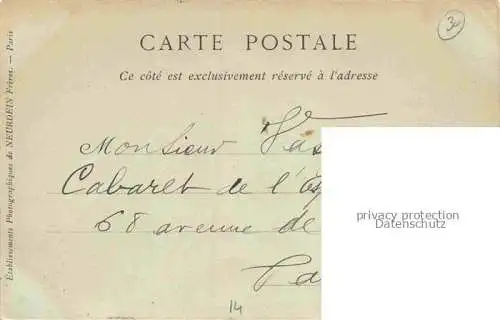 3
CARTE POSTALE
Ce côté est exclusivement réservé à l'adresse
Monsieur
Cabaret de l'
68 avenue de
Pa
14
Etablissements Photographiques de NEURDEIN Frères. — Paris
privacy protection
Datenschutz